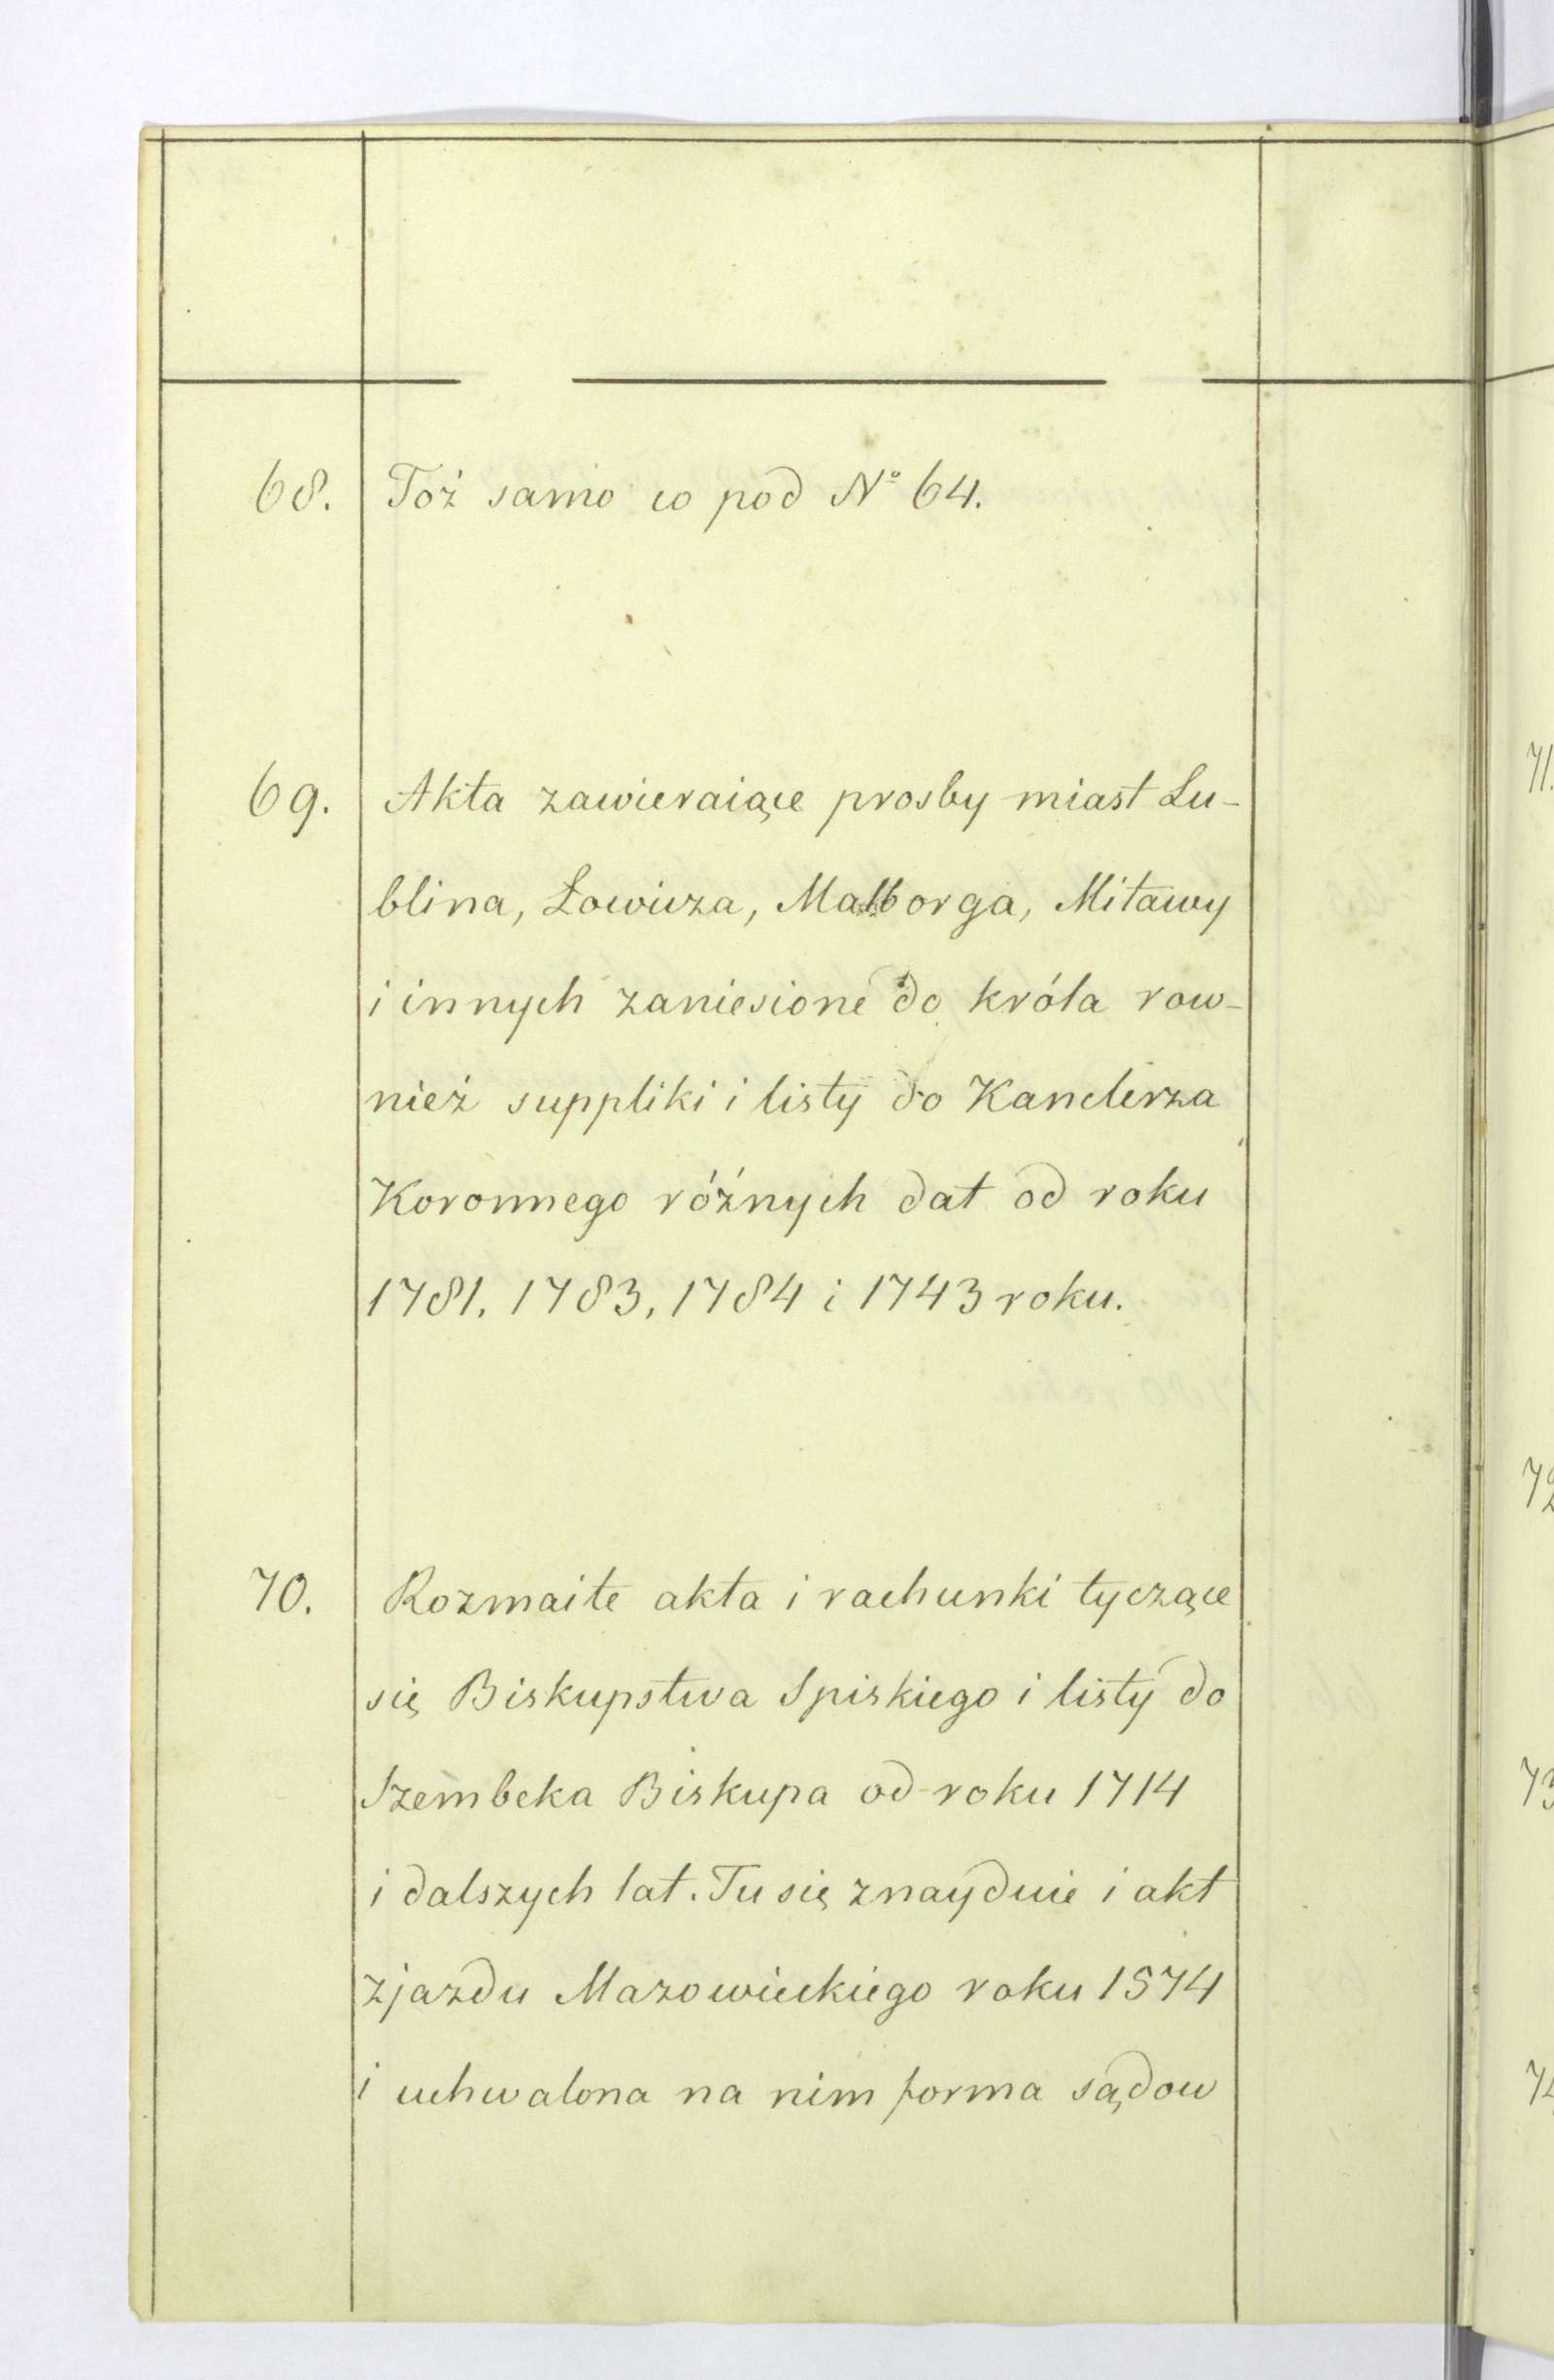 68. Toż samo co pod Nº 64.
69. Akta zawieraiące prosby miast Lu-
blina, Łowicza, Malborga, Mitawy
i innych zaniesione do króla row-
nież suppliki i listy do Kanclerza
Koronnego różnych dat od roku
1781, 1783, 1784 i 1743 roku.
70. Rozmaite akta i rachunki tyczące
się Biskupstwa Spiskiego i listy do
Szembeka Biskupa od roku 1714
i dalszych lat. Tu się znayduie i akt
zjazdu Mazowieckiego roku 1574
i uchwalona na nim forma sądow
71.
72
73